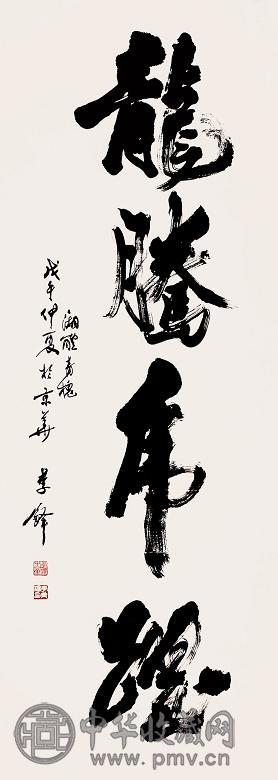 龍騰虎躍
湘醴青槐
戊午仲夏於京華 李鐸
中华收藏网
www.pmv.cn